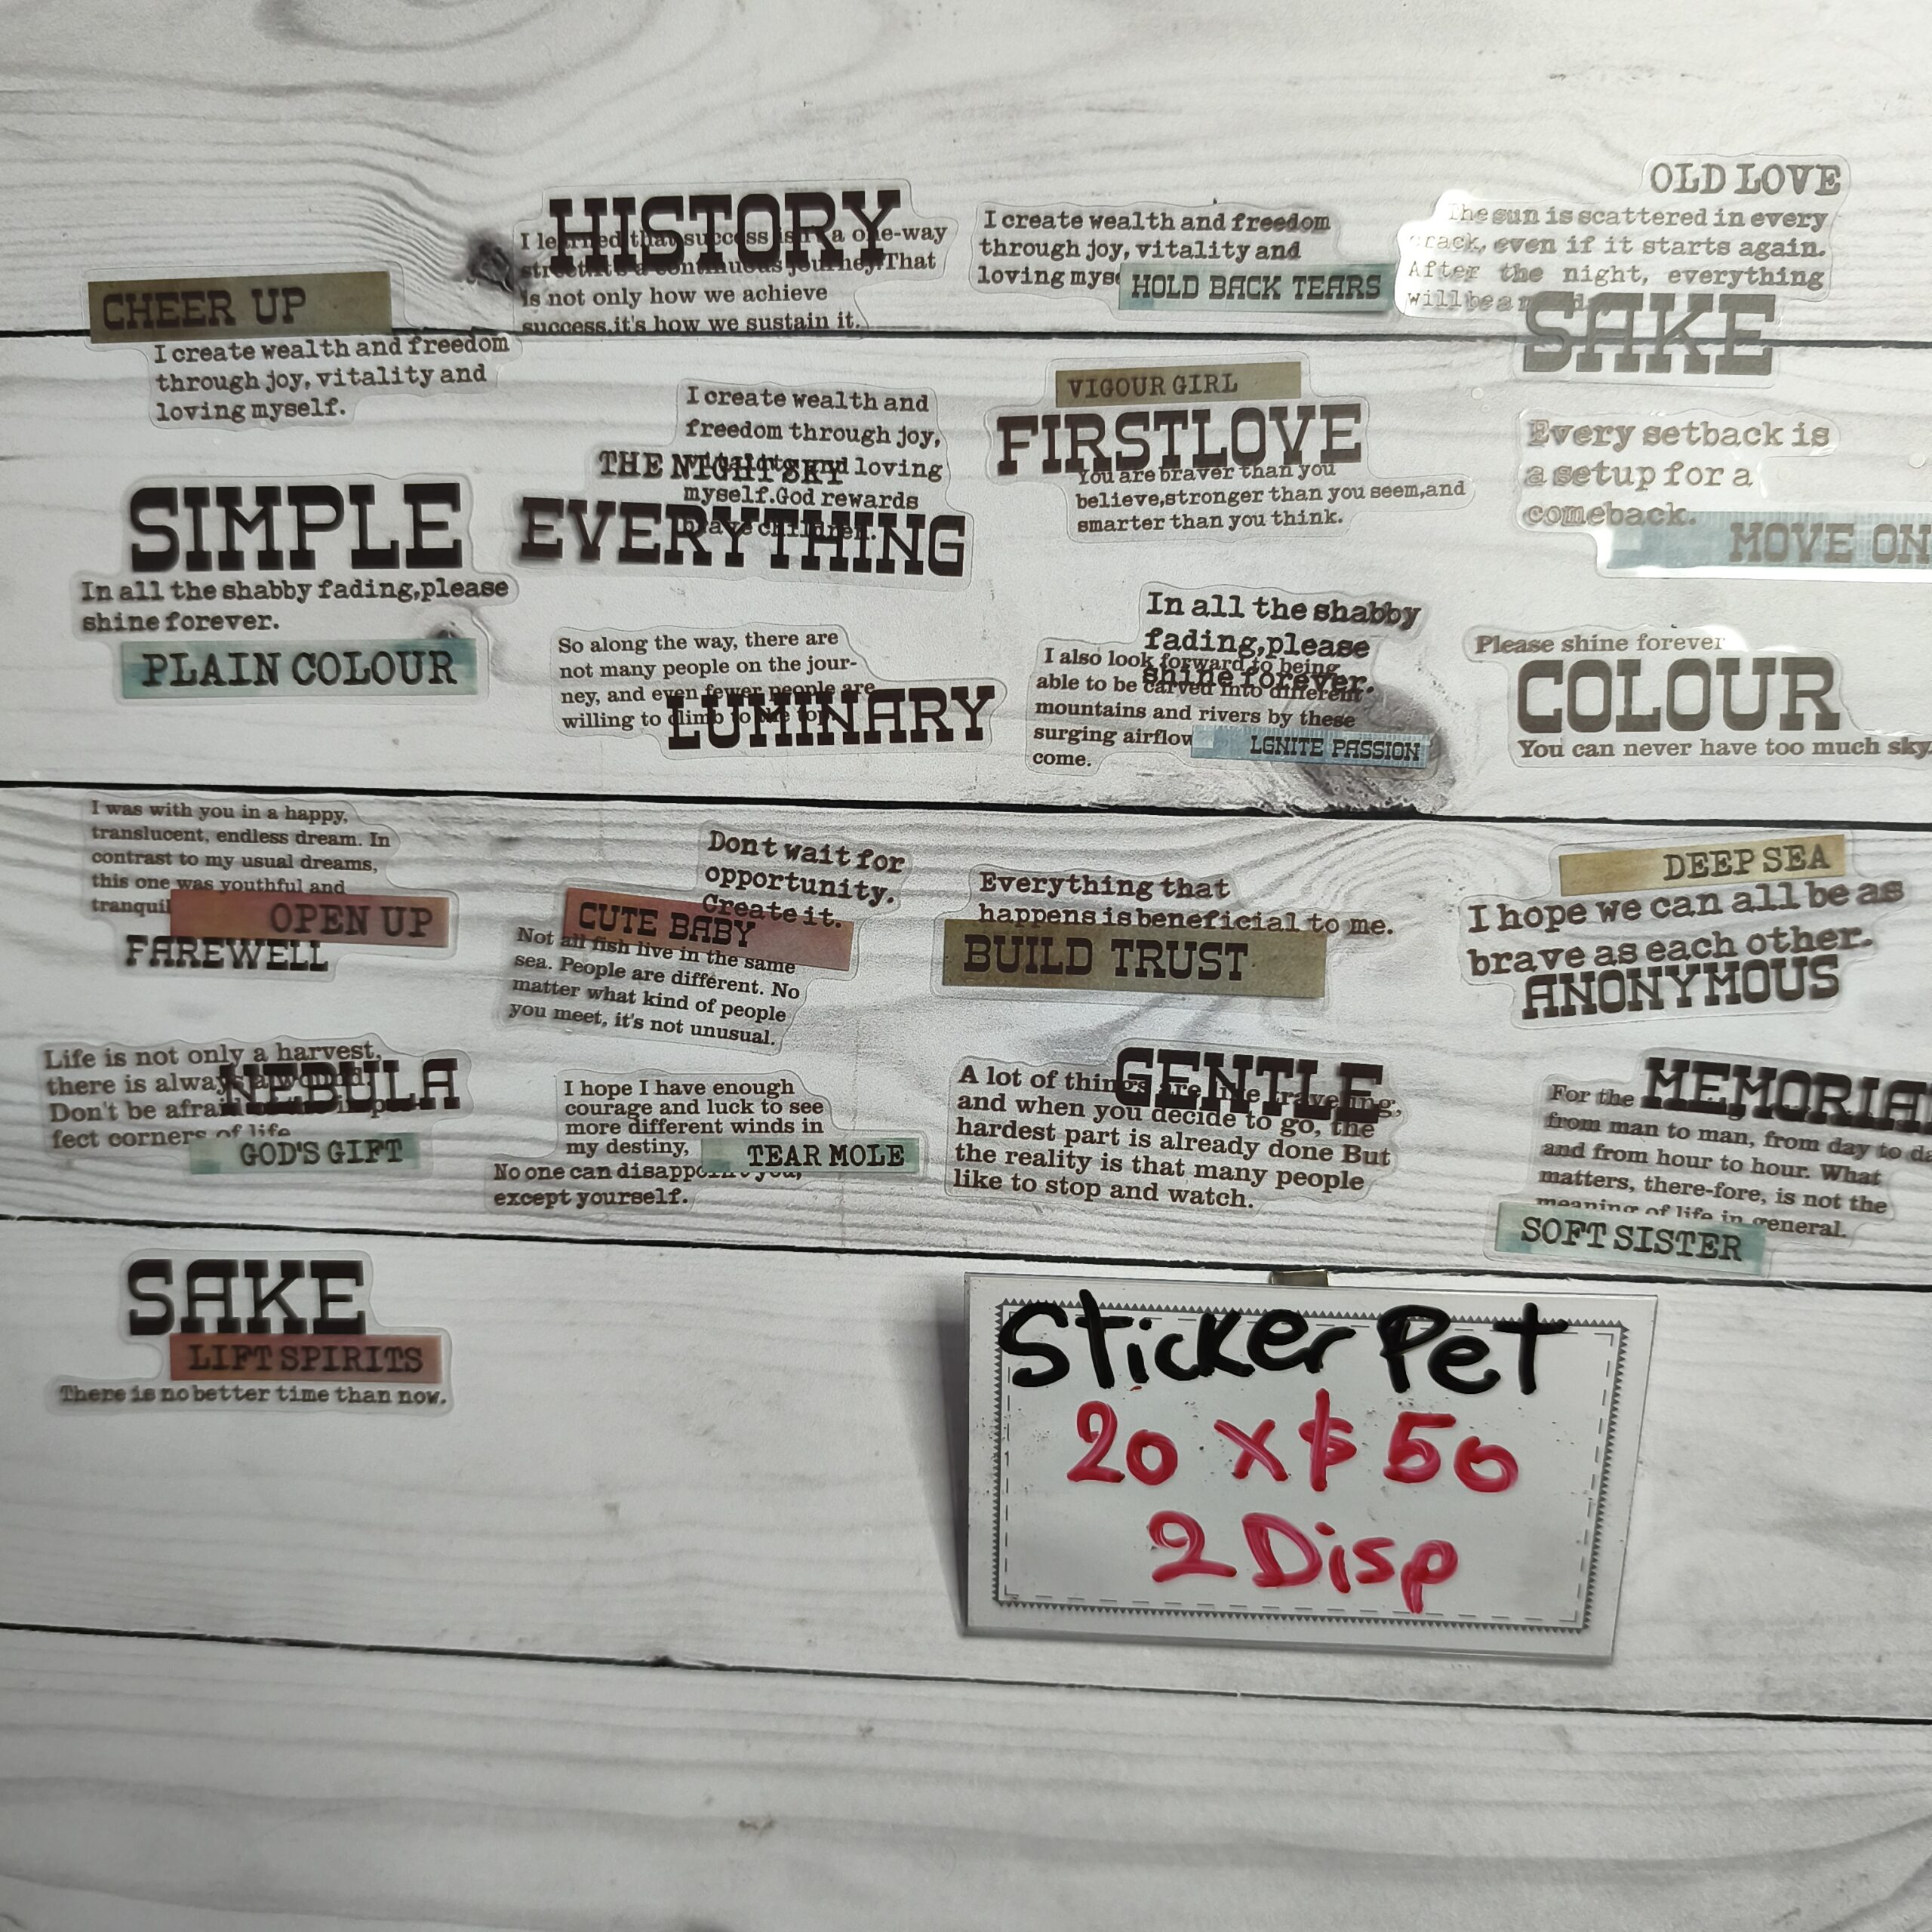 CHEER UP
I create wealth and freedom
through joy, vitality and
loving myself.
HISTORY
I learned that success isn't a one-way
street. It's a continuous journey. That
is not only how we achieve
success.it's how we sustain it.
I create wealth and freedom
through joy, vitality and
loving myse
HOLD BACK TEARS
OLD LOVE
The sun is scattered in every
crack, even if it starts again.
After the night, everything
will be a
SAKE
SIMPLE
In all the shabby fading,please
shine forever.
PLAIN COLOUR
I create wealth and
freedom through joy,
THE NIGHT SKY
vitality and loving
myself.God rewards
brave children.
EVERYTHING
VIGOUR GIRL
FIRSTLOVE
You are braver than you
believe,stronger than you seem,and
smarter than you think.
Every setback is
a setup for a
comeback.
MOVE ON
So along the way, there are
not many people on the jour-
ney, and even fewer people are
willing to climb to the top
LUMINARY
In all the shabby
fading,please
shine forever.
I also look forward to being
able to be carved into different
mountains and rivers by these
surging airflow
come.
LGNITE PASSION
Please shine forever
COLOUR
You can never have too much sky.
I was with you in a happy,
translucent, endless dream. In
contrast to my usual dreams,
this one was youthful and
tranquil
OPEN UP
FAREWELL
Dont wait for
opportunity.
Create it.
CUTE BABY
Not all fish live in the same
sea. People are different. No
matter what kind of people
you meet, it's not unusual.
Everything that
happens is beneficial to me.
BUILD TRUST
DEEP SEA
I hope we can all be as
brave as each other.
ANONYMOUS
Life is not only a harvest,
there is always a wound.
Don't be afrai
fect corners of life
NEBULA
GOD'S GIFT
I hope I have enough
courage and luck to see
more different winds in
my destiny,
TEAR MOLE
No one can disappoint you,
except yourself.
GENTLE
A lot of things are like traveling,
and when you decide to go, the
hardest part is already done But
the reality is that many people
like to stop and watch.
MEMORIA
For the
from man to man, from day to da
and from hour to hour. What
matters, there-fore, is not the
meaning of life in general.
SOFT SISTER
SAKE
LIFT SPIRITS
There is no better time than now.
Sticker Pet
20 x $ 50
2 Disp